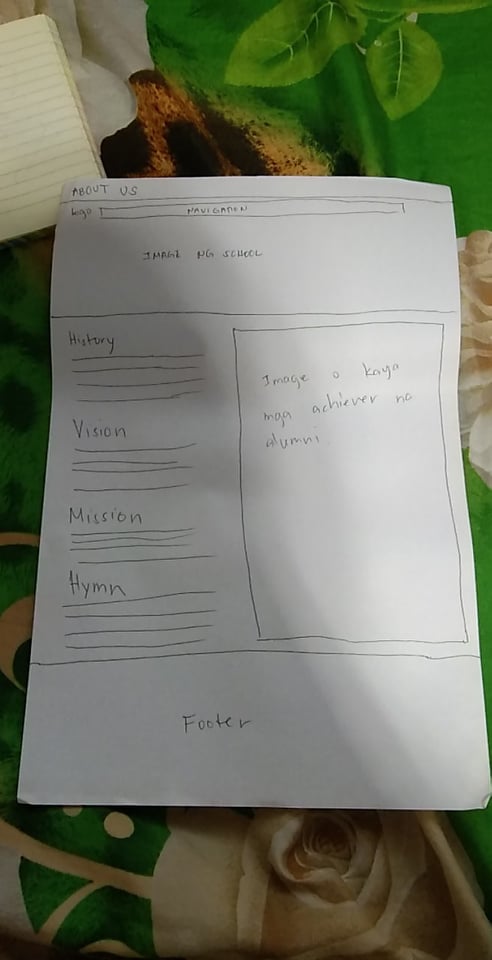 ABOUT US
Logo NAVIGATION
IMAGE NG SCHOOL
History
Vision
Mission
Hymn
Image o kaya
mga achiever na
alumni.
Footer